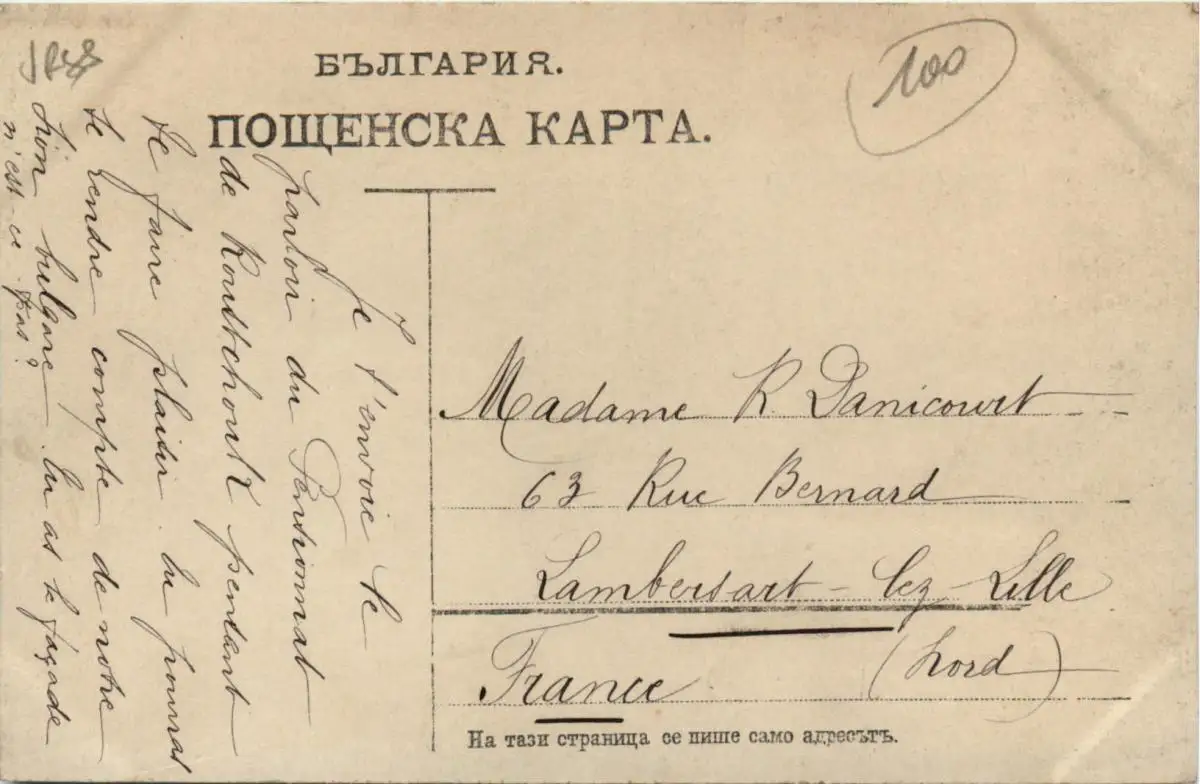 БЪЛГАРИЯ.
ПОЩЕНСКА КАРТА.
100
Je t'envoie le
parloir du Pensionnat
de Roustchouk pendant
te faire plaisir. Tu pourras
te rendre compte de notre
lion bulgare. Tu as la façade
n'est ce pas?
Madame R. Danicourt
63 Rue Bernard
Lambersart-lez-Lille
France (Nord)
На тази страница се пише само адресътъ.